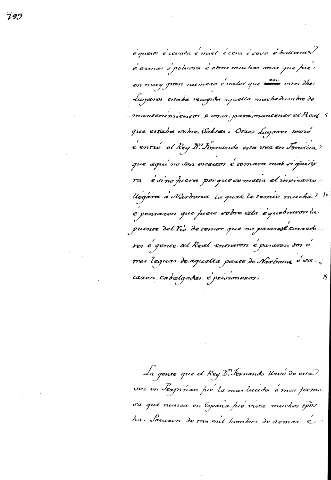 799
é queso é cevada é miel é cera é sevo é ballestas
é armas é polvora é otras muchas cosas que fué
en muy gran numero é valor que en dos
Lugares estaba recogida aquella muchedumbre de
mantenimientos é cosas para mantener el Real 5
que estaba sobre Salsas. Otros Lugares tomó
é entró el Rey Dn. Fernando esta vez en Francia
que aquí no son escritos é tomara mas si quisie
ra é si no fuera por que se metia el invierno
llegára á Narbona la qual le temió mucho 10
é pensaron que fuera sobre ella é quebraron la
puente del Rio de temor que no pasase corredo
res é gente del Real entraron é pasaron dos ó
tres leguas de aquella parte de Narbona é sa
caron cabalgadas é prisioneros. 15
La gente que el Rey Dn. Fernando llevó de esta
vez en Perpiñan fué la mas lucida é mas fermo
sa que nunca en España fué vista muchos tpos.
ha. Pasaron de seis mil hombres de armas é